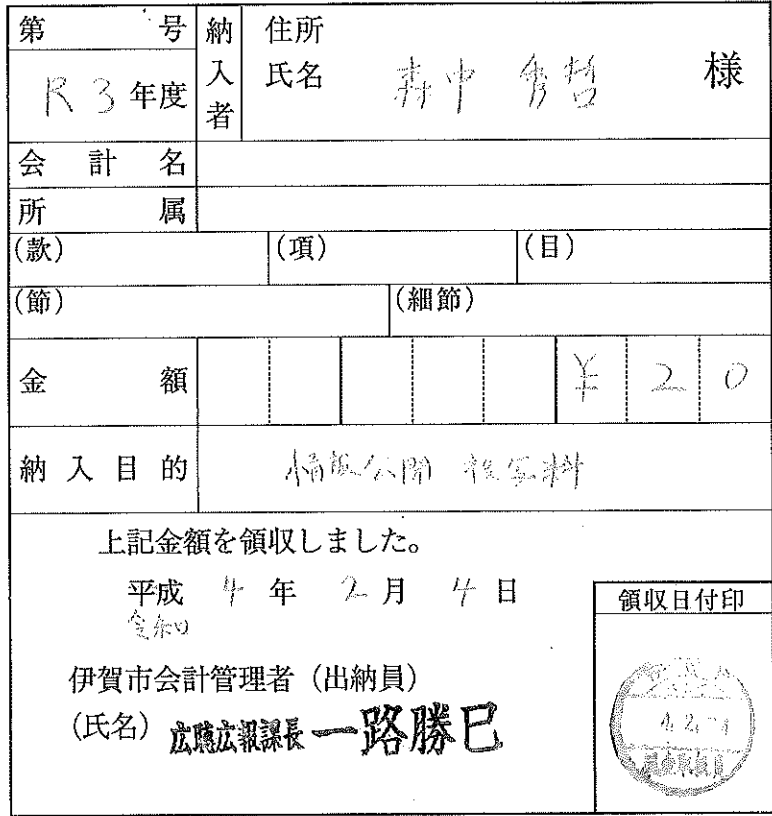 第 号
R3年度
納入者
住所
氏名 森中 秀哲 様
会計名
所属
(款) (項) (目)
(節) (細節)
金額 ¥20
納入目的 情報公開 複写料
上記金額を領収しました。
平成 4年 2月 4日
令和
伊賀市会計管理者(出納員)
(氏名) 広聴広報課長 一路勝巳
領収日付印
4.2.-4